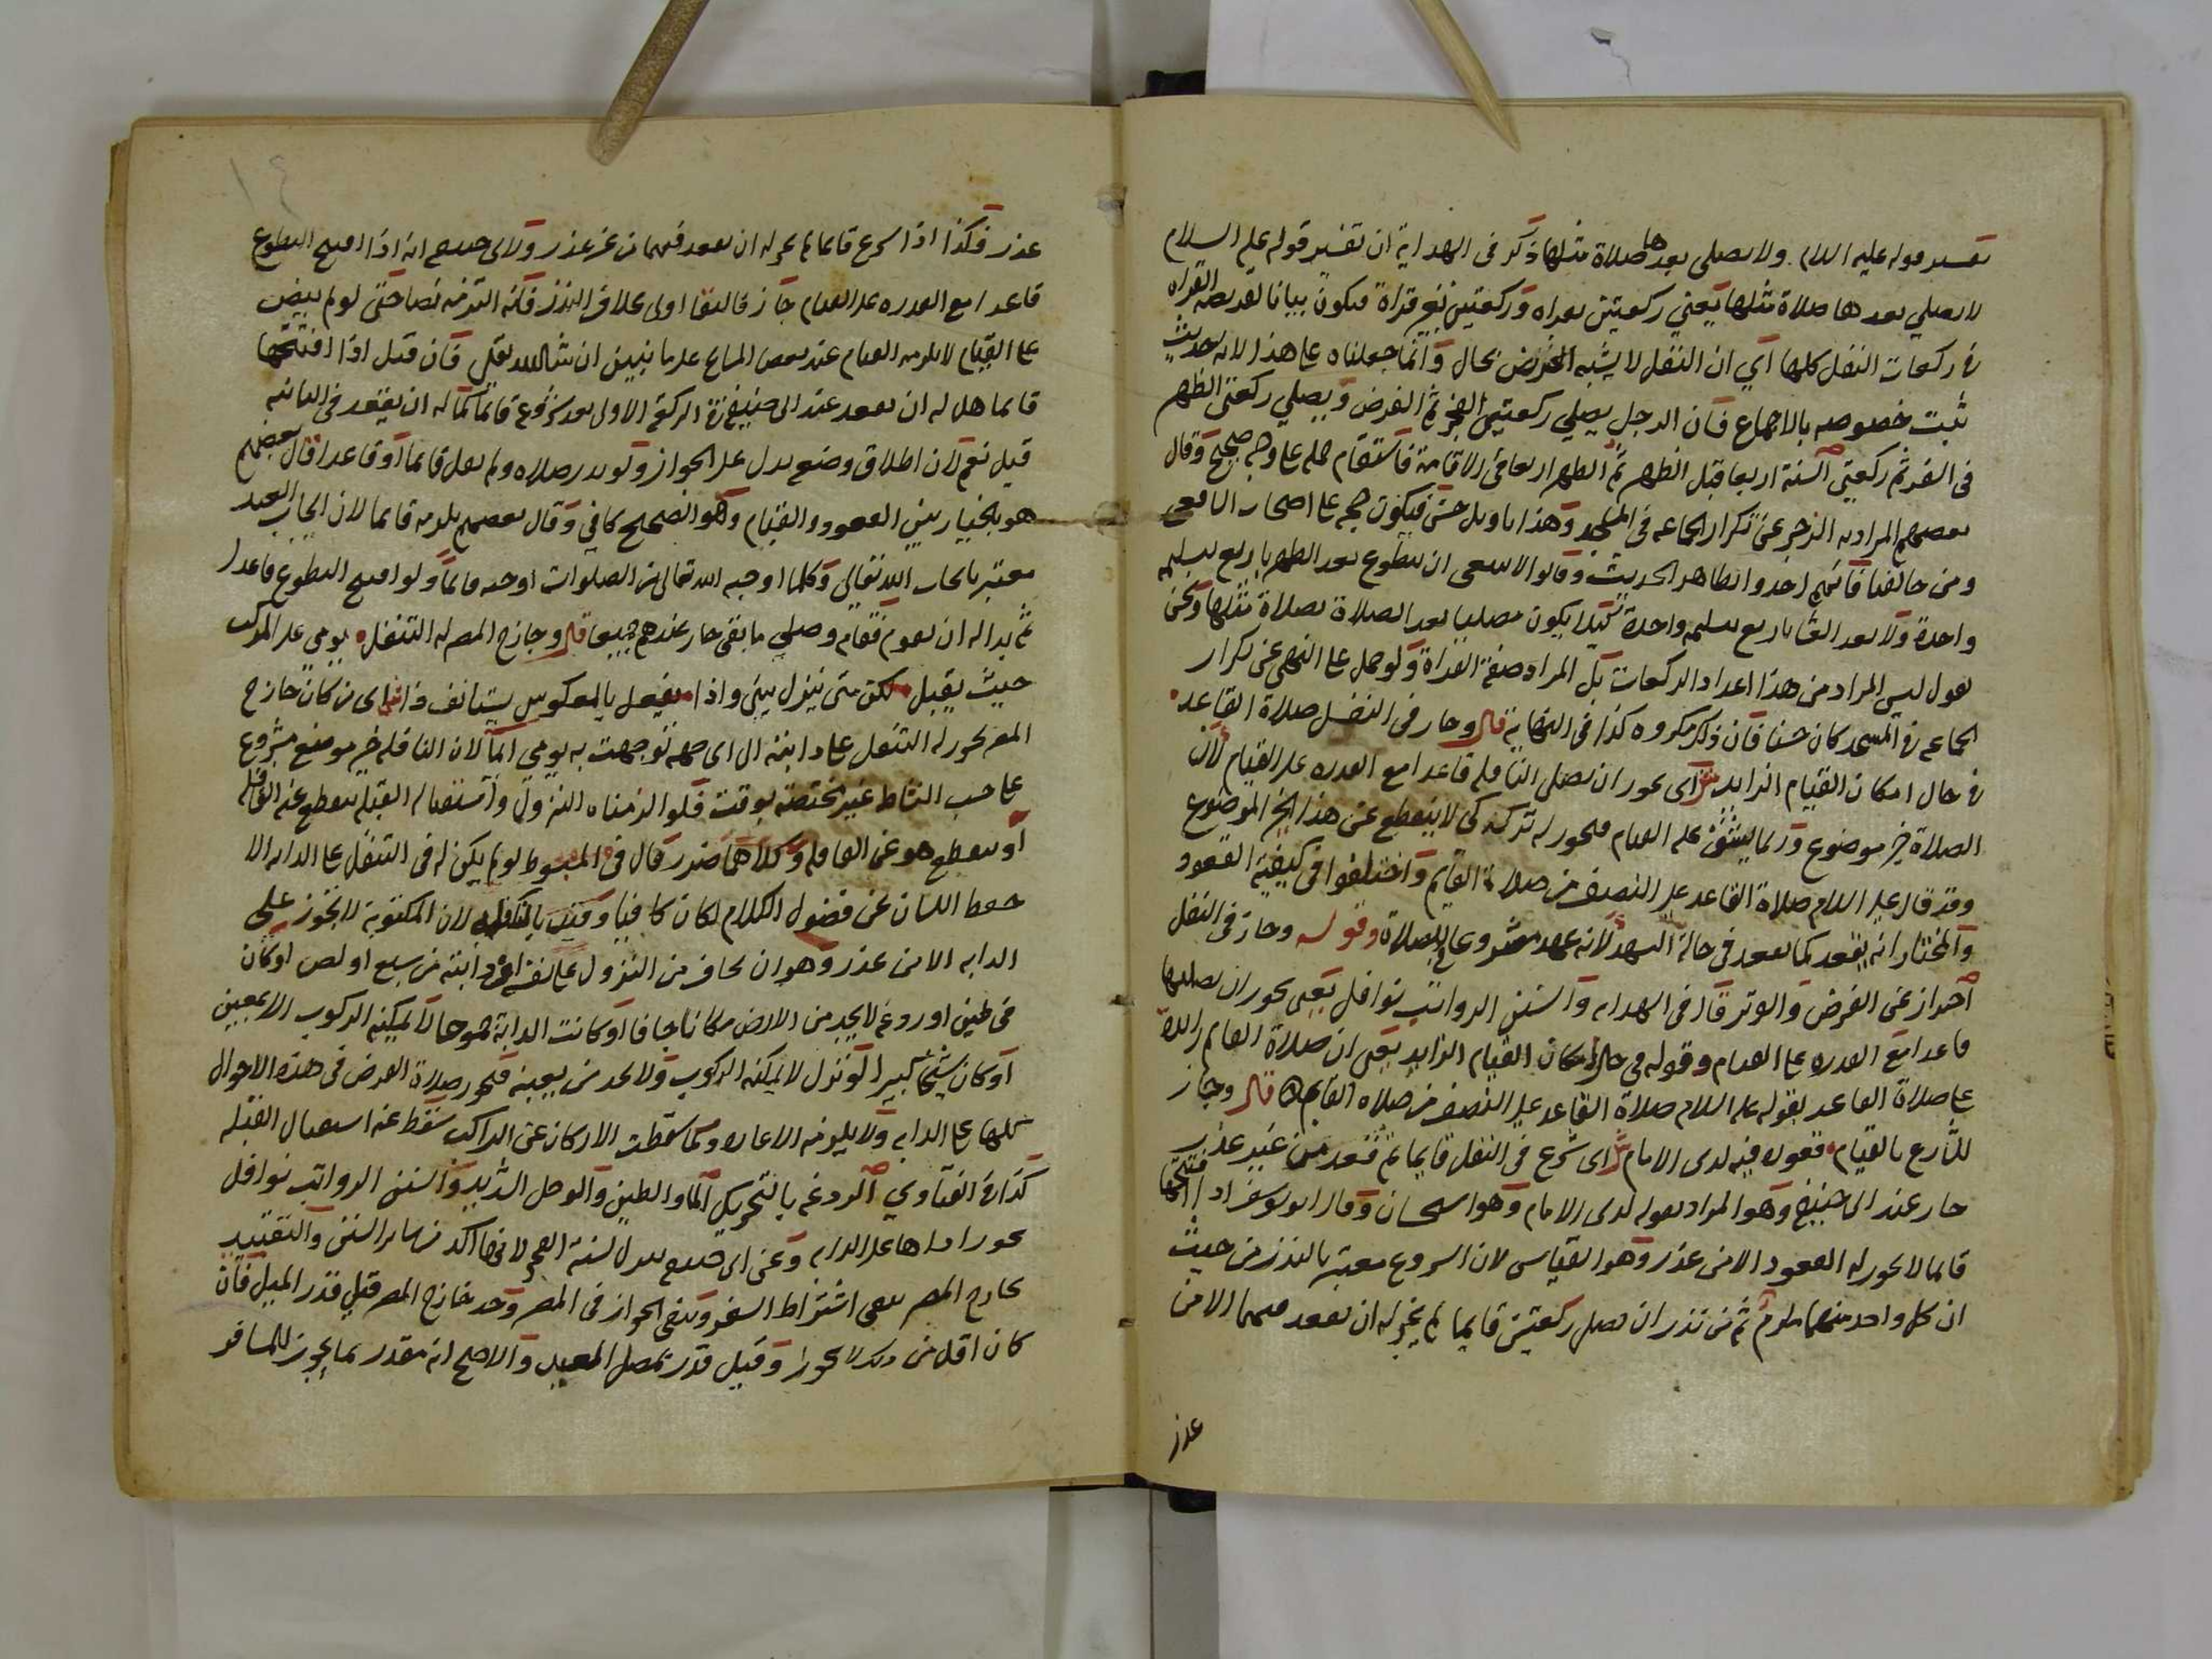 تفسير قوله عليه السلام ولا يصلي بعدها صلاة مثلها ذكر في الهداية ان تفسير قوله عليه السلام
لا يصلي بعدها صلاة مثلها يعني ركعتين بقراه وركعتين بغير قراة فيكون بيانا لفريضه القراه
في ركعات النفل كلها اي ان النفل لا يشبه الفرض بحال وانما جعلناه على هذا لانه حديث
ثبت خصوصه بالاجماع فان الرجل يصلي ركعتي الفجر ثم الفرض ويصلي ركعتي الظهر
في السفر ثم ركعتي السنة اربعا قبل الظهر ثم الظهر اربعا في الاقامة فاستقام حمله على وجه صحيح وقال
بعضهم المراد به الزجر عن تكرار الجماعه في المسجد وهذا تاويل حسن فيكون حجه على اصحاب الشافعي
ومن خالفنا فانهم اخذوا بظاهر الحديث وقالوا لا ينبغي ان يتطوع بعد الظهر باربع بتسليمه
واحدة ولا بعد العشا باربع بتسليمه واحدة كيلا يكون مصليا بعد الصلاة بصلاة مثلها ونحن
نقول ليس المراد من هذا اعداد الركعات بل المراد صفة القراة ولو حمل على النهي عن تكرار
الجماعه في المسجد كان حسنا فان ذلك مكروه كذا في النهاية قال وجاز في النفل صلاة القاعد
في حال امكان القيام الزايد ش اى يجوز ان يصلي النافله قاعدا مع القدره على القيام لان
الصلاة خير موضوع وربما يشق عليه القيام فيجوز له تركه كى لا ينقطع عن هذا الخير الموضوع
وقد قال عليه السلام صلاة القاعد على النصف من صلاة القايم واختلفوا في كيفية القعود
والمختار انه يقعد كما يقعد في حالة التشهد لانه عهد مشروعا في الصلاة وقوله وجاز في النفل
احتراز عن الفرض والوتر قال في الهدايه والسنن الرواتب نوافل يعني يجوز ان يصليها
قاعدا مع القدره على القيام وقوله في حال امكان القيام الزايد يعني ان صلاة القايم زايدة
على صلاة القاعد بقوله عليه السلام صلاة القاعد على النصف من صلاه القايم قال وجاز
للشارع بالقيام قعوده فيه لدى الامام ش اى شرع في النفل قايما ثم قعد من غير عذر
جاز عند ابى حنيفة وهو المراد بقوله لدى الامام وهو استحسان وقال ابو يوسف اذا افتتحها
قايما لا يجوز له القعود الا من عذر وهو القياس لان الشروع معتبر بالنذر من حيث
ان كل واحد منهما ملزم ثم من نذر ان يصلي ركعتين قايما لم يجز له ان يقعد فيهما الا من
عذر
عذر فكذا اذا شرع قايما لم يجز له ان يقعد فيهما من غير عذر ولابى حنيفه انه اذا افتتح التطوع
قاعدا مع القدره على القيام جاز فالبقا اولى بخلاف النذر فانه التزمه نصا حتى لو لم ينص
على القيام لا يلزمه القيام عند بعض المشايخ على ما نبين ان شا الله تعالى فان قيل اذا افتتحها
قايما هل له ان يقعد عند ابى حنيفة في الركعة الاولى بعد شروعه قايما كما له ان يقعد في الثانيه
قيل نعم لان اطلاق وضعه يدل على الجواز ولو نذر صلاه ولم يقل قايما او قاعدا قال بعضهم
هو بالخيار بين القعود والقيام وهو الصحيح كافي وقال بعضهم يلزمه قايما لان ايجاب العبد
معتبر بايجاب الله تعالى وكلما اوجبه الله تعالى من الصلوات اوجبه قايما ولو افتتح التطوع قاعدا
ثم بدا له ان يقوم فقام وصلى ما بقى جاز عندهم جميعا قال وجازح المصر له التنفل يومي على المركب
حيث يقبل لكن متى ينزل يبنى واذا يفعل بالمعكوس يستانف ذا ش اى من كان خارج
المصر يجوز له التنفل على دابته الى اى جهه توجهت به يومي ايما لان النافله خير موضع مشروع
على حسب النشاط غير مختصة بوقت فلو الزمناه النزول واستقبال القبله ينقطع عنه القافله
او ينقطع هو عن القافله وكلاهما ضرر قال في المبسوط لو لم يكن له في التنفل على الدابه الا
حفظ اللسان عن فضول الكلام لكان كافيا وقيد بالنافله لان المكتوبة لا تجوز على
الدابه الا من عذر وهو ان يخاف من النزول على نفسه او دابته من سبع او لص او كان
في طين او ردغه لا يجد من الارض مكانا جافا او كانت الدابة جموحا لا يمكنه الركوب الا بمعين
او كان شيخا كبيرا لو نزل لا يمكنه الركوب ولا يجد من يعينه فيجوز صلاة الفرض في هذه الاحوال
كلها على الدابه ولا يلزمه الاعاده وكما سقطت الاركان عن الراكب سقط عنه استقبال القبله
كذا في الفتاوي الردغه بالتحريك الما والطين والوحل الشديد والسنن الرواتب نوافل
يجوز اداها على الدابه وعن ابى حنيفه ينزل لسنة الفجر لانها اكد من ساير السنن والتقييد
بخارج المصر ينفى اشتراط السفر وينفى الجواز في المصر وحد خارج المصر قيل قدر الميل فان
كان اقل من ذلك لا يجوز وقيل قدر مصلى العيد والاصح انه مقدر بما يجوز للمسافر